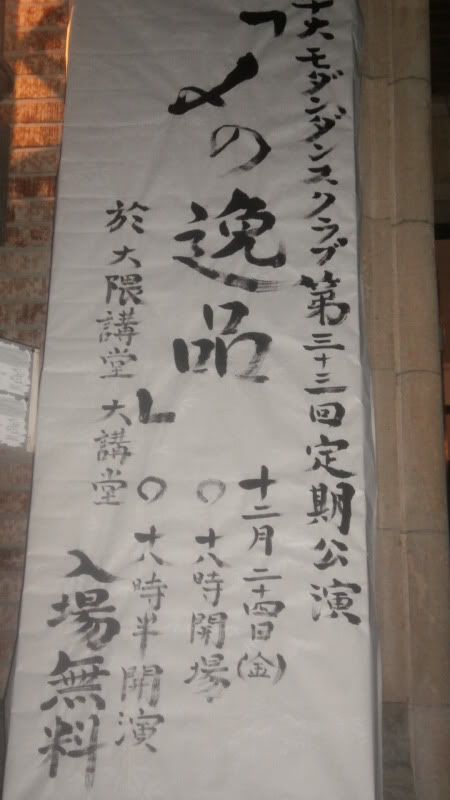 大モダンダンスクラブ第三十三回定期公演
「〆の逸品」
十二月二十四日(金)
○十八時開場
○十八時半開演
於大隈講堂大講堂
入場無料